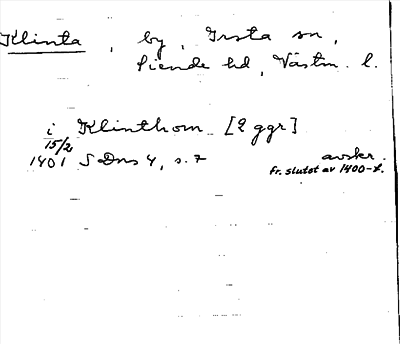 Klinta, by, Irsta sn,
Siende hd, Västm. l.
i Klinthom [2 ggr]
15/2
1401 SDns 4, s. 7 avskr.
fr. slutet av 1400-t.